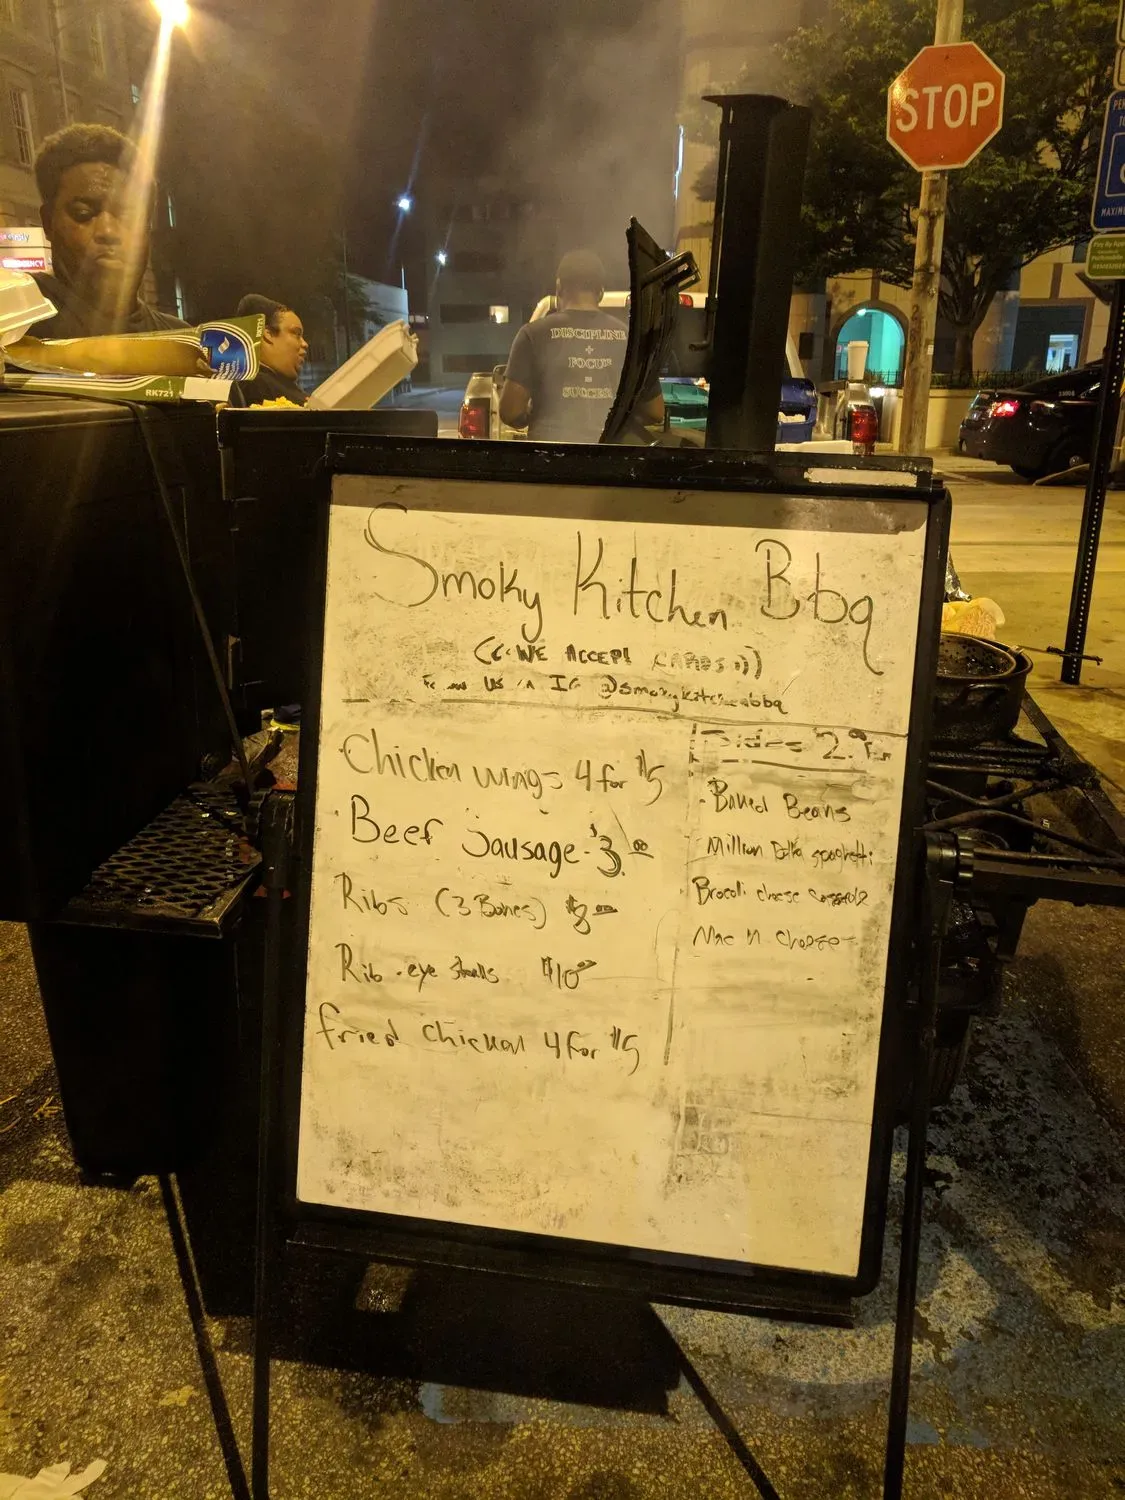 STOP
DISCIPLINE
+
FOCUS
=
SUCCESS
RK721
Smoky Kitchen Bbq
(((WE ACCEPT CARDS)))
Follow US on IG @smokykitchenbbq
Chicken wings 4 for $5
Beef Sausage - $3.00
Ribs (3 Bones)
Rib-eye $10
fried chicken 4 for $5
Sides 2.
- Baked Beans
Million Dolla spaghetti
Brocoli cheese
Mac n cheese